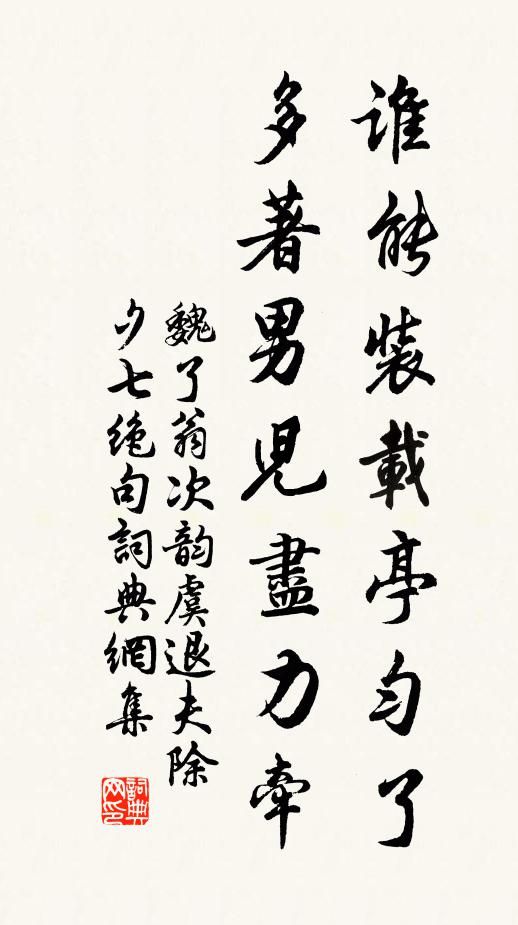 誰能裝載亭勻了
多著男児盡力牽
魏了翁次韵虞退夫除
夕七絕句詞典網集
詞典网印